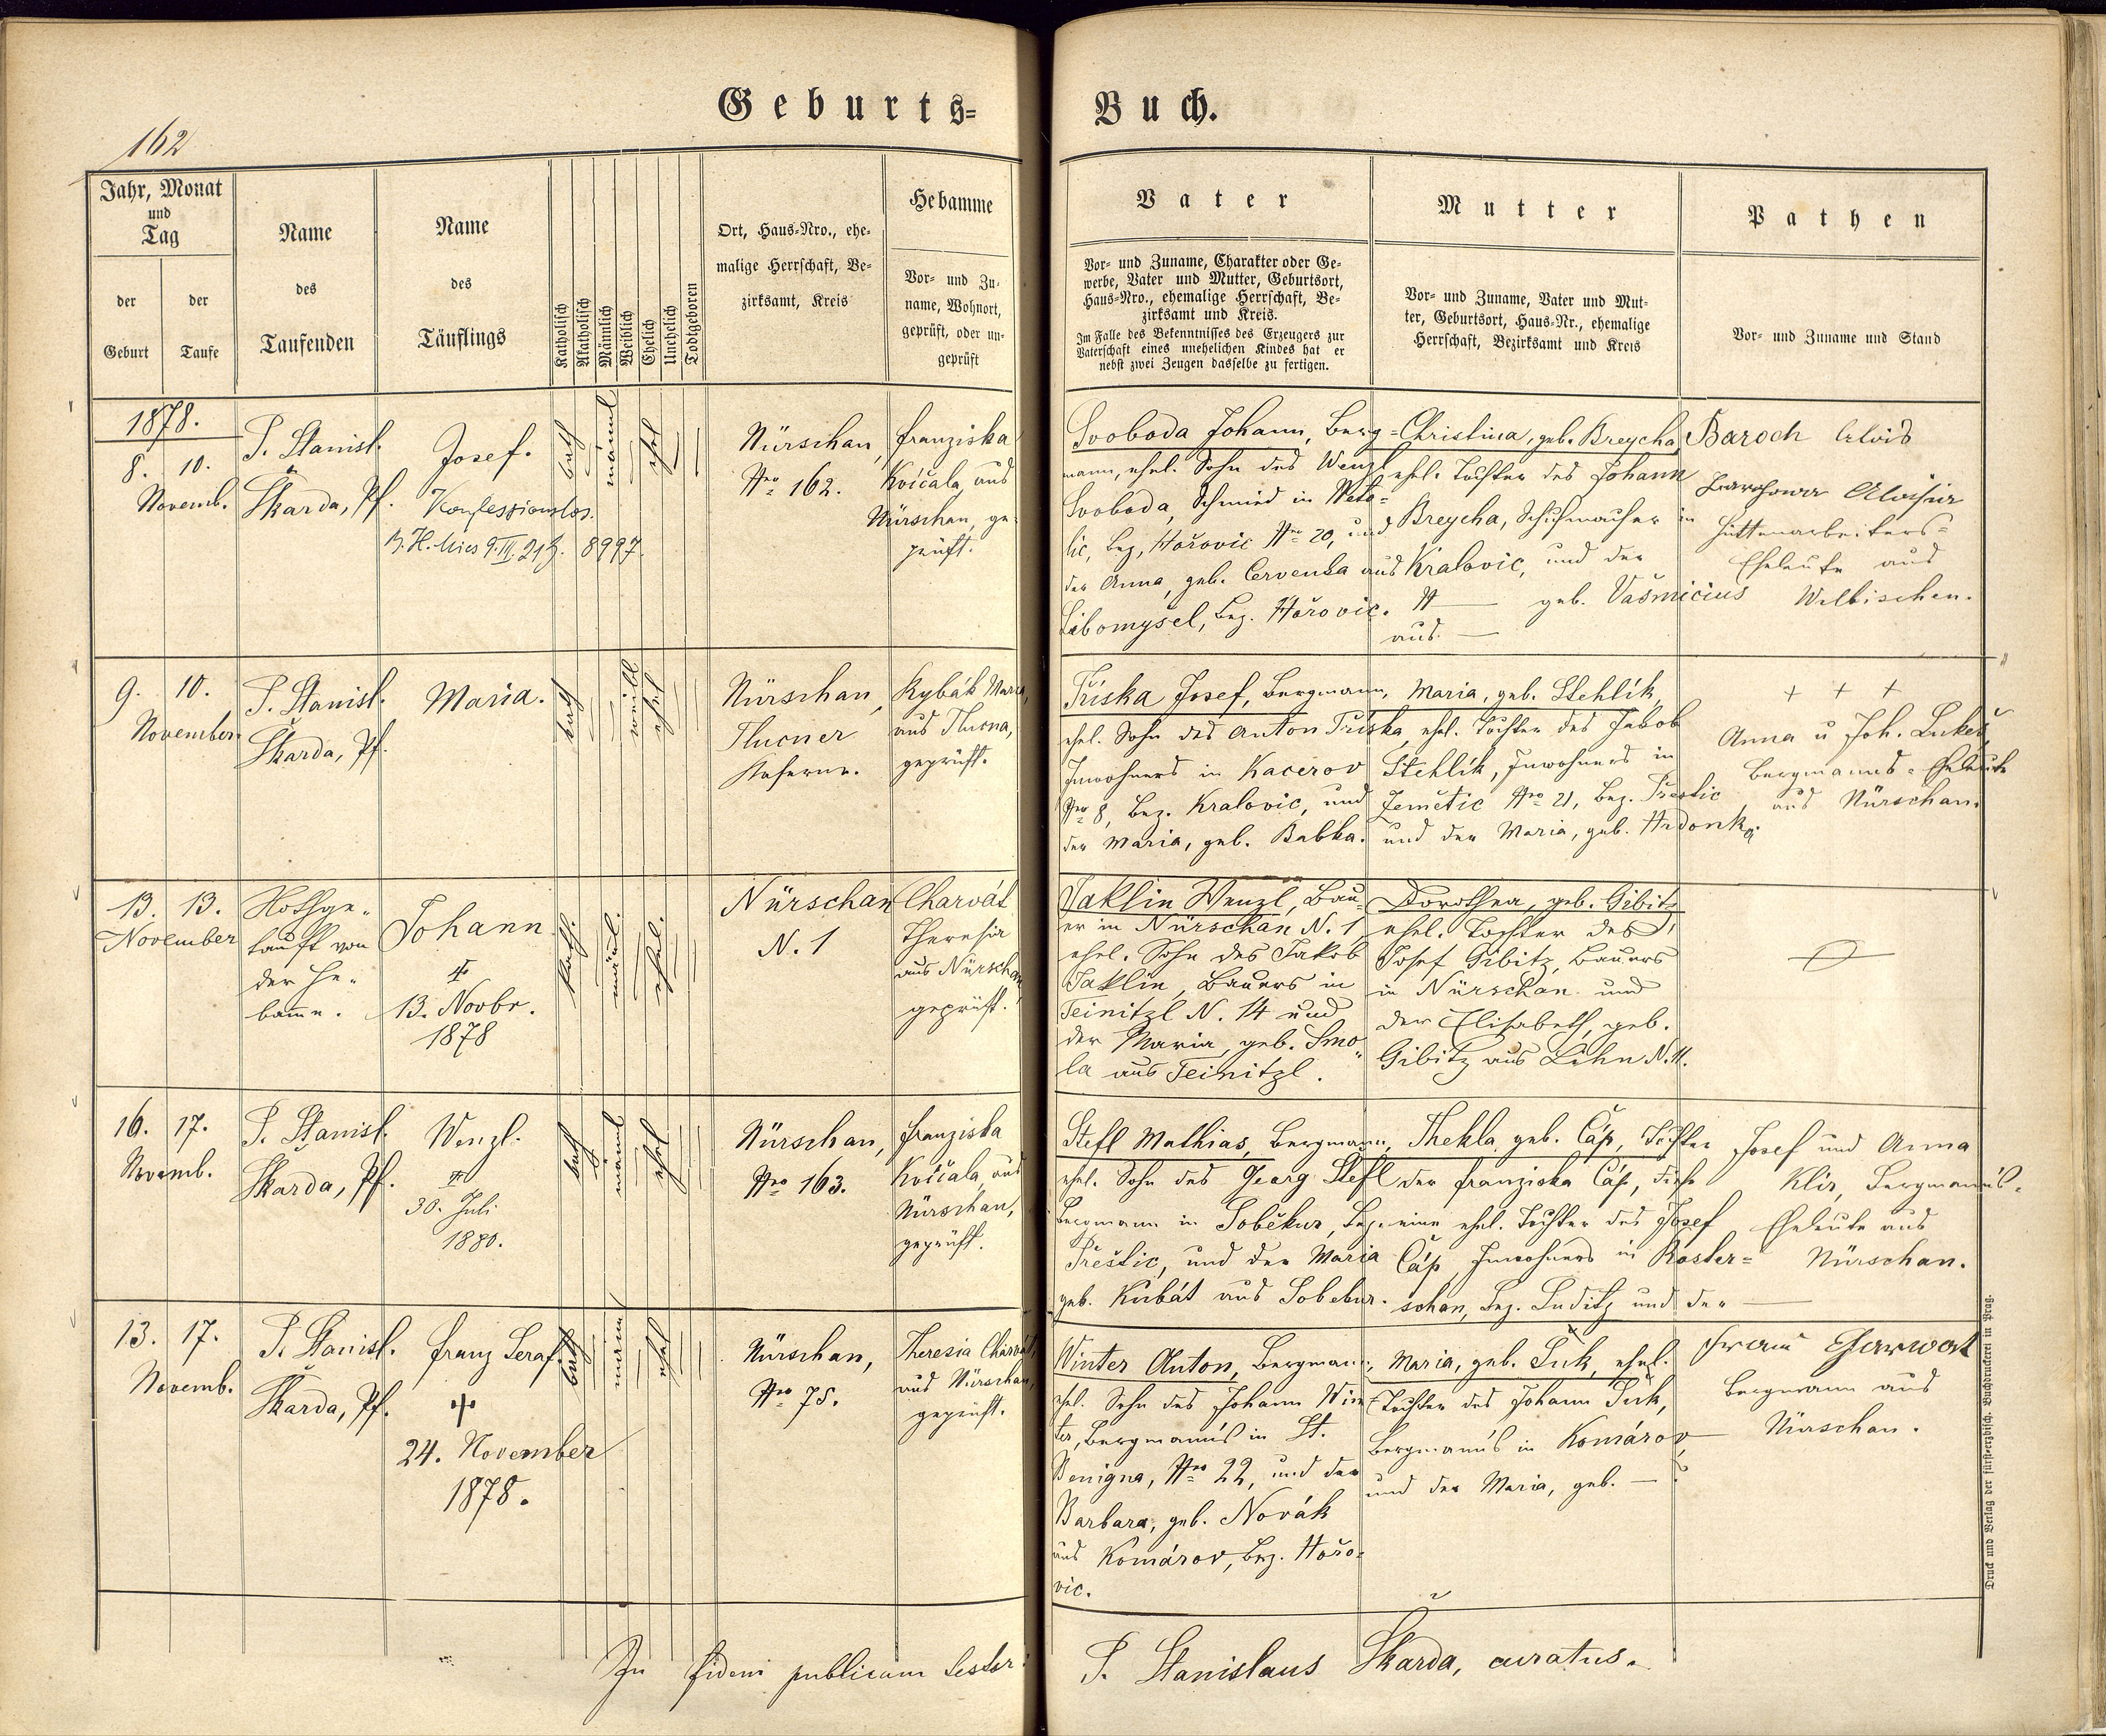 Geburts=
Buch.
162
Jahr, Monat
und
Tag
der
Geburt
der
Taufe
Name
des
Taufenden
Name
des
Täuflings
Katholisch
Akatholisch
Männlich
Weiblich
Ehelich
Unehelich
Todtgeboren
Ort, Haus=Nro., ehe=
malige Herrschaft, Be=
zirksamt, Kreis
Hebamme
Vor= und Zu=
name, Wohnort,
geprüft, oder un=
geprüft
Vater
Vor= und Zuname, Charakter oder Ge=
werbe, Vater und Mutter, Geburtsort,
Haus=Nro., ehemalige Herrschaft, Be=
zirksamt und Kreis.
Im Falle des Bekenntnisses des Erzeugers zur
Vaterschaft eines unehelichen Kindes hat er
nebst zwei Zeugen dasselbe zu fertigen.
Mutter
Vor= und Zuname, Vater und Mut=
ter, Geburtsort, Haus=Nr., ehemalige
Herrschaft, Bezirksamt und Kreis
Pathen
Vor= und Zuname und Stand
1878.
8. 10.
Novemb.
P. Stanisl.
Škarda, Pf.
Josef.
Konfessionslos.
B. H. Mies 9. III. 21 Z. 8997.
kath
männl
ehel
Nürschan,
Nro 162.
Franziska
Kvíčala, aus
Nürschan, ge=
prüft.
Svoboda Johann, Berg=
mann, ehel. Sohn des Wenzl
Svoboda, Schmied in
lic, Bez. Hořovic Nro 20, und
der Anna, geb. Cervenka aus
Libomyšel, Bez. Hořovic.
Christina, geb. Breycha,
ehel. Tochter des Johann
Breycha, Schuhmacher in
Kralovic, und der
N — geb. Vašmicius
aus —
Baroch Alois
Aloisia
Hüttenarbeiters=
Eheleute aus
Wilkischen.
9. 10.
November.
P. Stanisl.
Škarda, Pf.
Maria.
kath
weibl
ehel
Nürschan,
Tlucner
Kaserne.
Rybák Maria,
aus Tlucna,
geprüft.
Tříska Josef, Bergmann,
ehel. Sohn des Anton Tříska,
Inwohners in Kacerov
Nro 8, Bez. Kralovic, und
der Maria, geb. Babka.
Maria, geb. Stehlík,
ehel. Tochter des Jakob
Stehlík, Inwohners in
Zemětic Nro 21, Bez. Přestic
und der Maria, geb. Hrdonka.
+ + +
Anna u Joh. Lukeš
Bergmanns=Eheleute
aus Nürschan.
13. 13.
November
Nothge=
tauft von
der He=
bamme.
Johann
‡
13. Novbr.
1878
kath.
männl.
ehel.
Nürschan
N. 1
Charvát
Theresia
aus Nürschan,
geprüft.
Taklin Wenzl, Bau=
er in Nürschan N. 1,
ehel. Sohn des Jakob
Taklin, Bauers in
Teinitzl N. 14 und
der Maria, geb. Smo=
la aus Teinitzl.
Dorothea, geb. Gibitz
ehel. Tochter des
Josef Gibitz, Bauers
in Nürschan und
der Elisabeth, geb.
Gibitz aus Lihn N. 11.
16. 17.
Novemb.
P. Stanisl.
Škarda, Pf.
Wenzl.
‡
30. Juli
1880.
kath
männl
ehel
Nürschan,
Nro 163.
Franziska
Kvíčala, aus
Nürschan,
geprüft.
Štefl Mathias, Bergmann,
ehel. Sohn des Georg Štefl
Bergmann in Soběkur, Bez.
Přeštic, und der Maria
geb. Kubát aus Sobekur.
Thekla, geb. Čáp, Tochter
der Franziska Čáp, diese
eine ehel. Tochter des Josef
Čáp, Inwohners in Koster=
schan, Bez. Luditz und der —
Josef und Anna
Klir, Bergmanns=
Eheleute aus
Nürschan.
13. 17.
Novemb.
P. Stanisl.
Škarda, Pf.
Franz Seraf.
‡
24. November
1878.
kath
männl
ehel
Nürschan,
Nro 75.
Theresia Charvát,
aus Nürschan,
geprüft.
Winter Anton, Bergmann,
ehel. Sohn des Johann Win=
ter, Bergmanns in St.
Benigna, Nro 22, und der
Barbara, geb. Novák
aus Komárov, Bez. Hořo=
vic.
Maria, geb. Suk, ehel.
Tochter des Johann Suk,
Bergmanns in Komárov,
und der Maria, geb. — ?
Bergmann aus
Nürschan.
In fidem publicam
P. Stanislaus Škarda, curatus.
Druck und Verlag der fürst=erzbisch. Buchdruckerei in Prag.